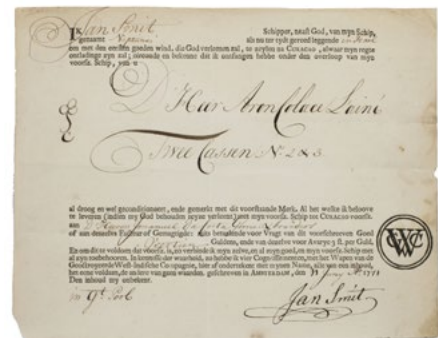 IK Jan Smit Schipper, naast God, van myn Schip,
genaamt Neptunus als nu ter tydt gereed leggende
om met den eersten goeden wind, die God verleenen zal, te zeylen na CURACAO, alwaar myn regte
ontladinge zyn zal; oirconde en bekenne dat ik ontfangen hebbe onder den overloop van myn
voorsz. Schip, van u
D'Har Aron Colace Laini
Twee Cassen N. 2 & 3
al droog en wel geconditioneert, ende gemerkt met dit voorstaande Merk. Al het welke ik beloove
te leveren (indien my God behouden reyze verleent) met myn voorsz. Schip tot CURACAO voorsz.
aan D'Heeren Emanuel
of aan desselfs Facteur of Gemagtigde: mits betaalende voor Vragt van dit voorschreven Goed
Guldens, ende van desselve Avarye 3 ft. per Guld.
En om dit te voldoen dat voorsz. is, zo verbinde ik myn zelve, en al myn goed, en myn voorsz. Schip met
al zyn toebehooren. In kennisse der waarheid, zo hebbe ik vier Cognossementen, met het Wapen van de
Geoctroyeerde West-Indische Compagnie, hier of ondertekent met mynen Name, alle van een inhoud,
het eene voldaan, de andere van geen waarden. geschreven in AMSTERDAM, den
Den inhoud my onbekent.
GWC
Jan Smit